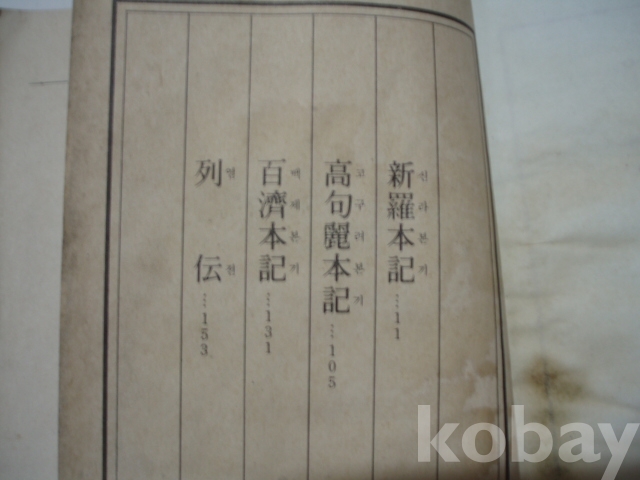 新羅本記…11
신라본기
高句麗本記…105
고구려본기
百濟本記…131
백제본기
列伝…153
열전
kobay